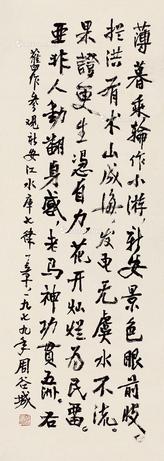 薄暮乘輪作小游新安景色眼前收
拦洪有术山成海发电无虞水不流
果證更生憑自力花开灿烂为民留
亚非人动翻身感走马神功贯五洲右
旧作参观新安江水库七律一章一九七九年周谷城